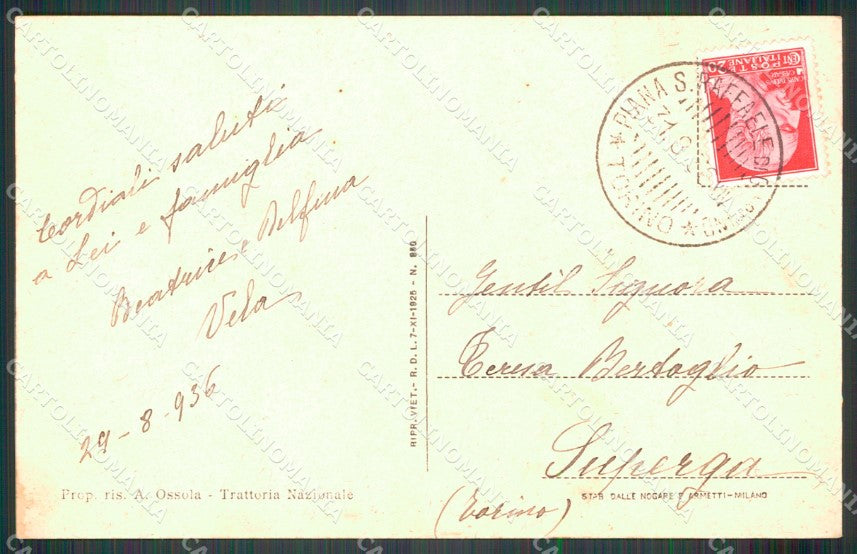 Cordiali saluti
a Lei e famiglia
Beatrice e Delfina
Vela
29-8-936
Prop. ris. A. Ossola - Trattoria Nazionale
RIPR. VIET. - R. D. L. 7-XI-1925 - N. 860
POSTE
ITALIANE
CENT 20
PIANA S. RAFFAELE
* TORINO *
31.8
Gentil Signora
Teresa Bertoglio
Superga
(Torino)
STAB. DALLE NOGARE E ARMETTI - MILANO
CARTOLINOMANIA